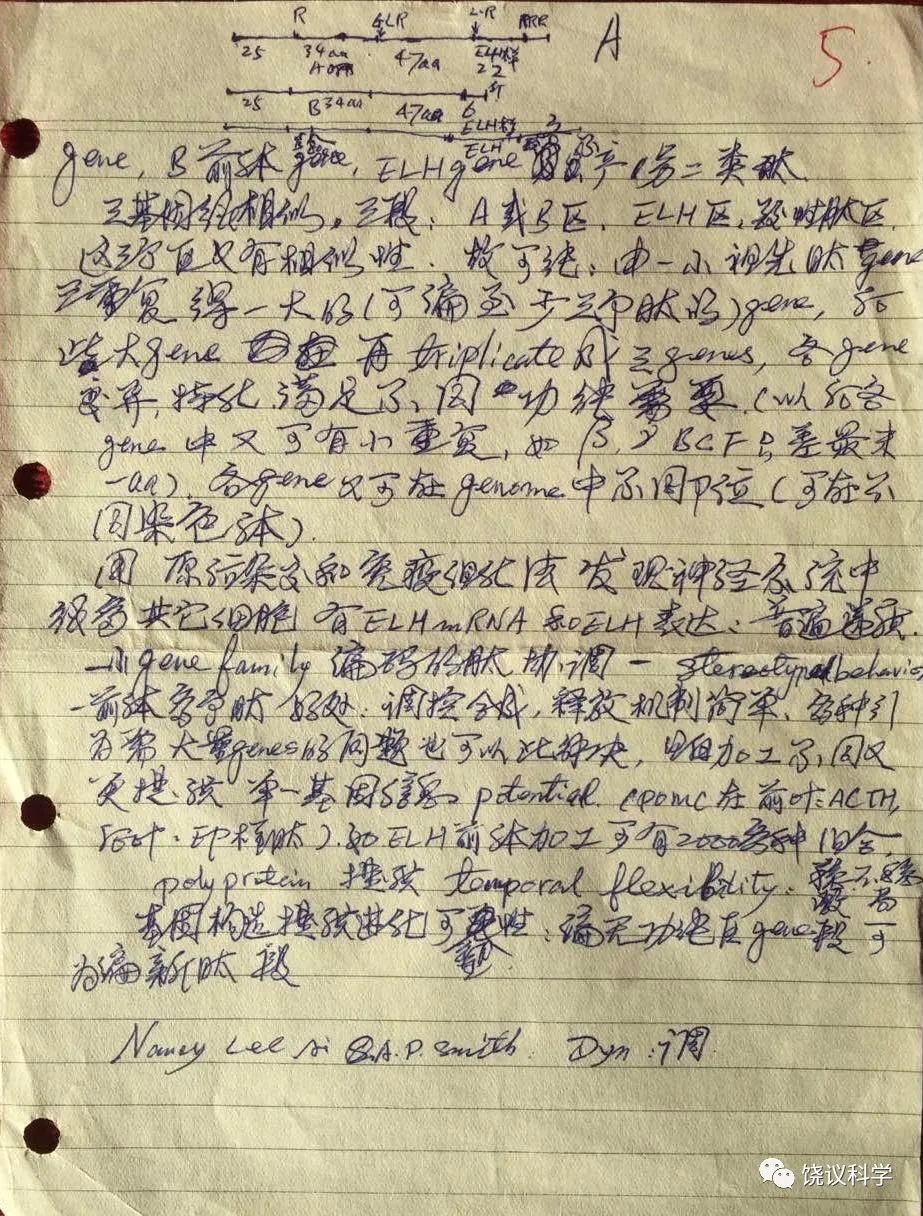 R GLR L-R ARR
25 34aa 47aa ELH样 22 A 5
25 B34aa 47aa 6
ELH样
gene, B前体gene, ELHgene 产(另二类肽.
三基因组相似。三段: A或B区, ELH区, 酸性肽区.
这三个区又有相似性. 故可能: 由一小祖先肽gene
三重复得一大的(可编至少三个肽的)gene, 后
此大gene 再triplicate成三genes, 各gene
变异, 特化 满足不同功能需要. (以后各
gene中又可有小重复, 如β,γBCFP, 差最末
一aa). 各gene又可在genome中不同P位(可在不
同染色体).
用原位杂交和免疫组化法发现神经系统中
很多其它细胞有ELHmRNA和ELH表达:
一小gene family 编码的肽协调一stereotyped behavior
一前体多个肽 好处: 调控合成, 释放机制简单、多种引
为需大量genes的问题也可以此解决, 且加工不同又
更提供单一基因 potential. (POMC在前叶:ACTH,
后叶: EP样肽). 如ELH前体加工可有2000多种组合.
polyprotein 提供 temporal flexibility.
基因构造提供进化可 性: 编无功能区gene段可
为编新肽段
Nancy Lee A.P. Smith. Dyn:调
饶议科学